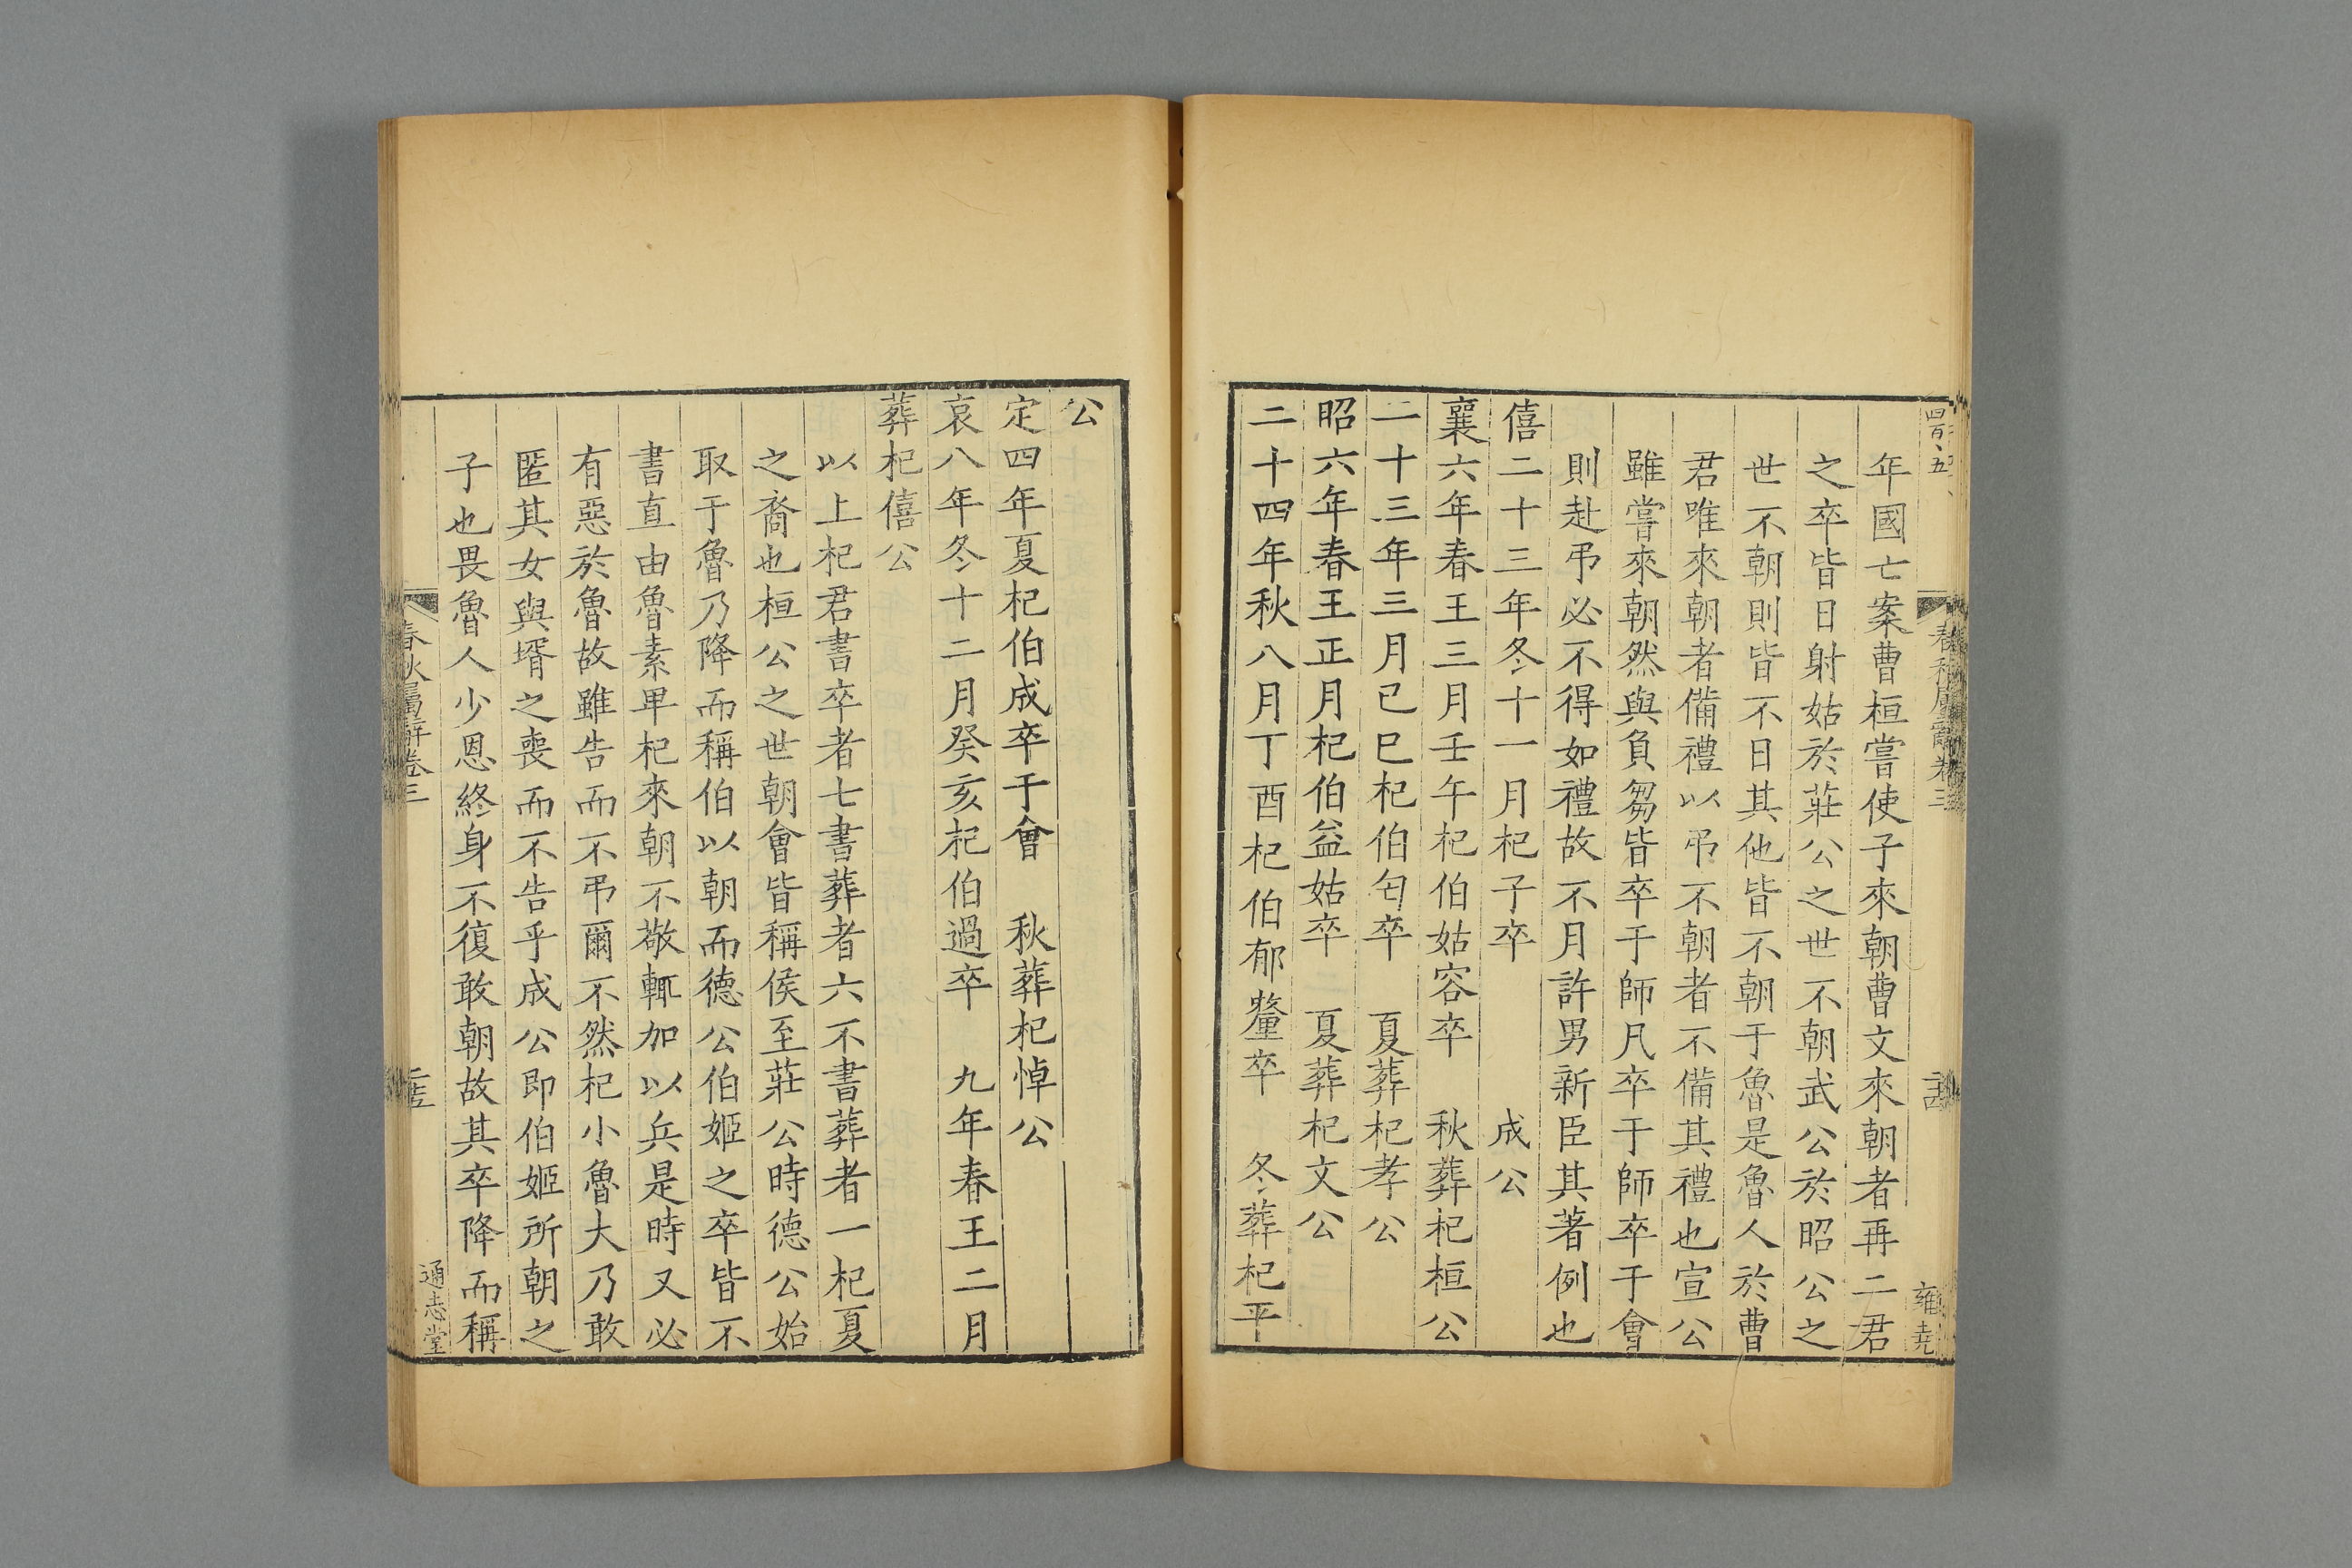 四百五
春秋屬辭卷三
雍堯
年國亡案曹桓嘗使子來朝曹文來朝者再二君
之卒皆日射姑於莊公之世不朝武公於昭公之
世不朝則皆不日其他皆不朝于魯是魯人於曹
君唯來朝者備禮以弔不朝者不備其禮也宣公
雖嘗來朝然與負芻皆卒于師凡卒于師卒于會
則赴弔必不得如禮故不月許男新臣其著例也
僖二十三年冬十一月杞子卒　成公
襄六年春王三月壬午杞伯姑容卒　秋葬杞桓公
二十三年三月己巳杞伯匄卒　夏葬杞孝公
昭六年春王正月杞伯益姑卒　夏葬杞文公
二十四年秋八月丁酉杞伯郁釐卒　冬葬杞平
公
定四年夏杞伯成卒于會　秋葬杞悼公
哀八年冬十二月癸亥杞伯過卒　九年春王二月
葬杞僖公
以上杞君書卒者七書葬者六不書葬者一杞夏
之裔也桓公之世朝會皆稱侯至莊公時德公始
取于魯乃降而稱伯以朝而德公伯姬之卒皆不
書直由魯素卑杞來朝不敬輒加以兵是時又必
有惡於魯故雖告而不弔爾不然杞小魯大乃敢
匿其女與壻之喪而不告乎成公即伯姬所朝之
子也畏魯人少恩終身不復敢朝故其卒降而稱
春秋屬辭卷三
通志堂